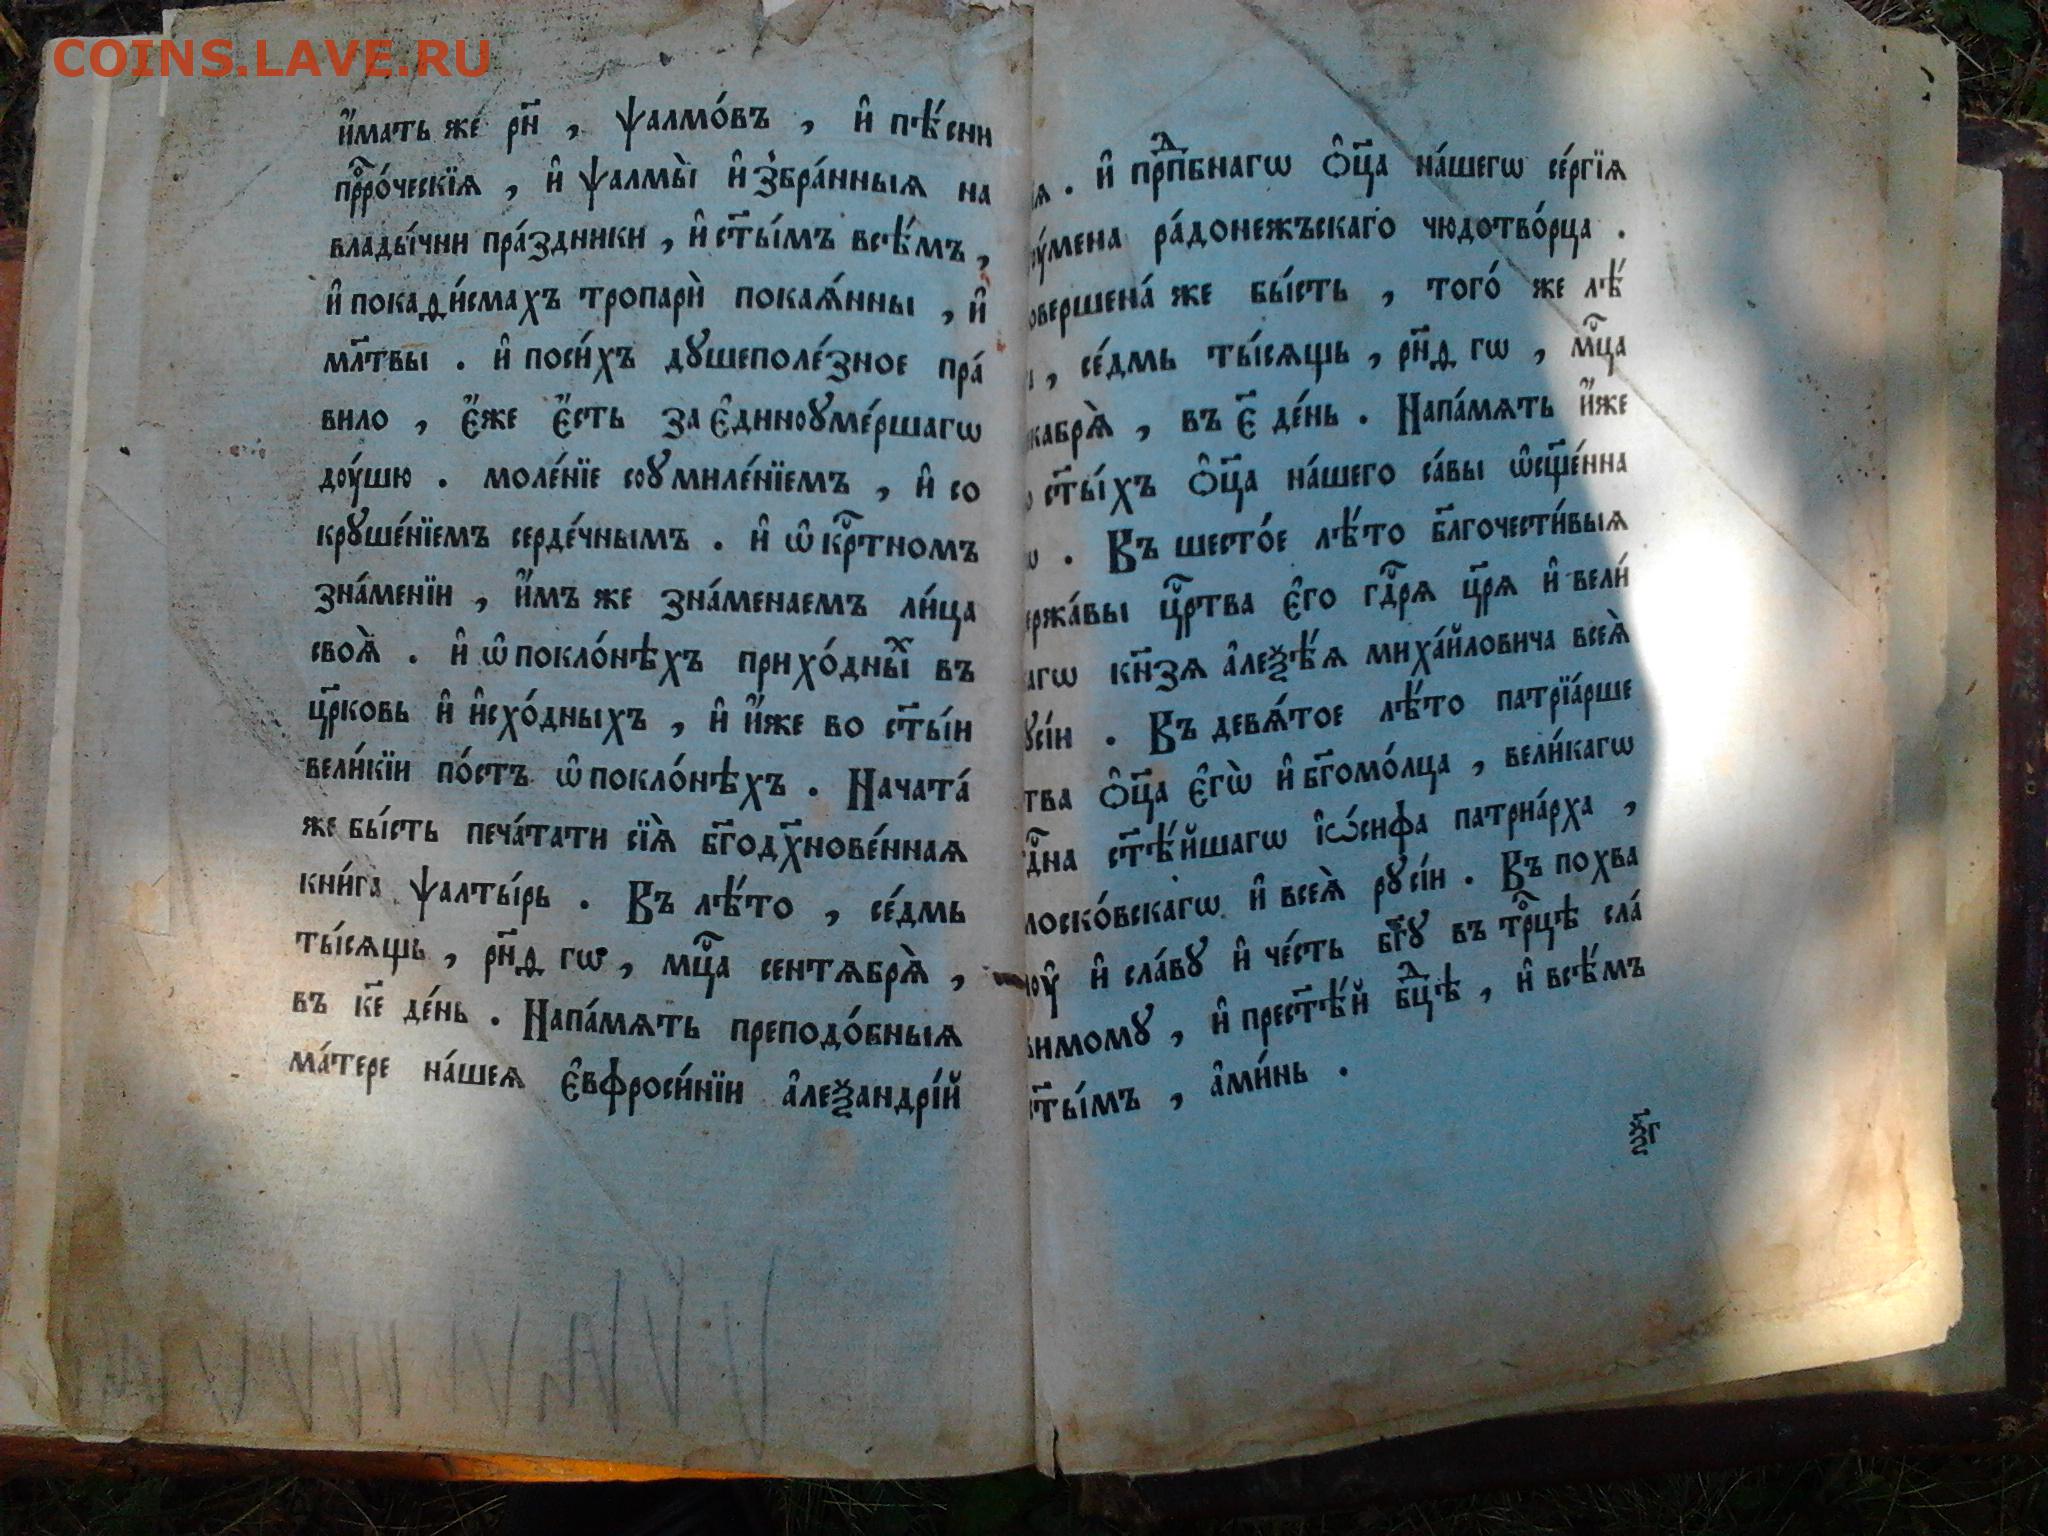 COINS.LAVE.RU
и҆́мать же рн҃ , ѱалмо́въ , и҆ пѣ́сни
прⷪ҇ро́ческїѧ , и҆ ѱалмы̀ и҆з̾бра́нныѧ на
влады́чни пра́здники , и҆ ст҃ы́мъ всѣ́мъ ,
и҆ покаѳи́смахъ тропарѝ покаѧ́нны , и҆
мл҃твы . и҆ поси́хъ дꙋшеполе́зное пра́
вило , є҆́же є҆́сть за є҆диноꙋме́ршагѡ
доу́шю . моле́нїе соꙋмиле́нїемъ , и҆ со
крꙋше́нїемъ серде́чнымъ . и҆ ѡ҆ крⷭ҇тномъ
зна́менїи , и҆́мъ же зна́менаемъ ли́ца
своѧ̀ . и҆ ѡ҆ покло́нѣхъ прихо́дныⷯ въ
цр҃ковь и҆ и҆схо́дныхъ , и҆ и҆́же во ст҃ы́и
вели́кїи по́стъ ѡ҆ покло́нѣхъ . Начата́
же бы́сть печа́тати сїѧ̀ бг҃одх҃нове́ннаѧ
кни́га ѱалты́рь . Въ лѣ́то , се́дмь
ты́сѧщь , рн҃ѳ гѡ , мцⷭ҇а сентѧбрѧ̀ ,
въ к҃е де́нь . Напа́мѧть преподо́бныѧ
ма́тере на́шеѧ є҆вфроси́нїи а҆леѯандрі́й
іѧ . и҆ прⷣпбнагѡ ѻ҆ц҃а на́шегѡ се́ргїѧ
оу́мена ра́донежъскаго чюдотво́рца .
овершена́ же бы́сть , того́ же лѣ́
, се́дмь ты́сѧщь , рн҃ѳ гѡ , мцⷭ҇а
кабрѧ̀ , въ є҃ де́нь . Напа́мѧть и҆́же
ст҃ы́хъ ѻ҆ц҃а на́шего са́вы ѡ҆сщ҃е́нна
ѡ . Въ шесто́е лѣ́то бл҃гочести́выѧ
ержа́вы црⷭ҇тва є҆го гдⷭ҇рѧ цр҃ѧ и҆ вели́
агѡ кн҃зѧ а҆леѯѣ́ѧ миха́йловича всеѧ̀
ꙋсі́и . Въ девѧ́тое лѣ́то патрїа́рше
тва ѻ҆ц҃а є҆гѡ̀ и҆ бг҃омо́лца , вели́кагѡ
дⷭ҇на ст҃ѣ́йшагѡ і҆ѡ́сифа патриа́рха ,
моско́вскагѡ и҆ всеѧ̀ рꙋсі́и . Въ похва
лоу̀ и҆ сла́вꙋ и҆ че́сть бг҃ꙋ въ трⷪ҇цѣ сла́
вимомꙋ , и҆ прест҃ѣ́й бцⷣѣ , и҆ всѣ́мъ
ст҃ы́мъ , а҆ми́нь .
ѯ҃г